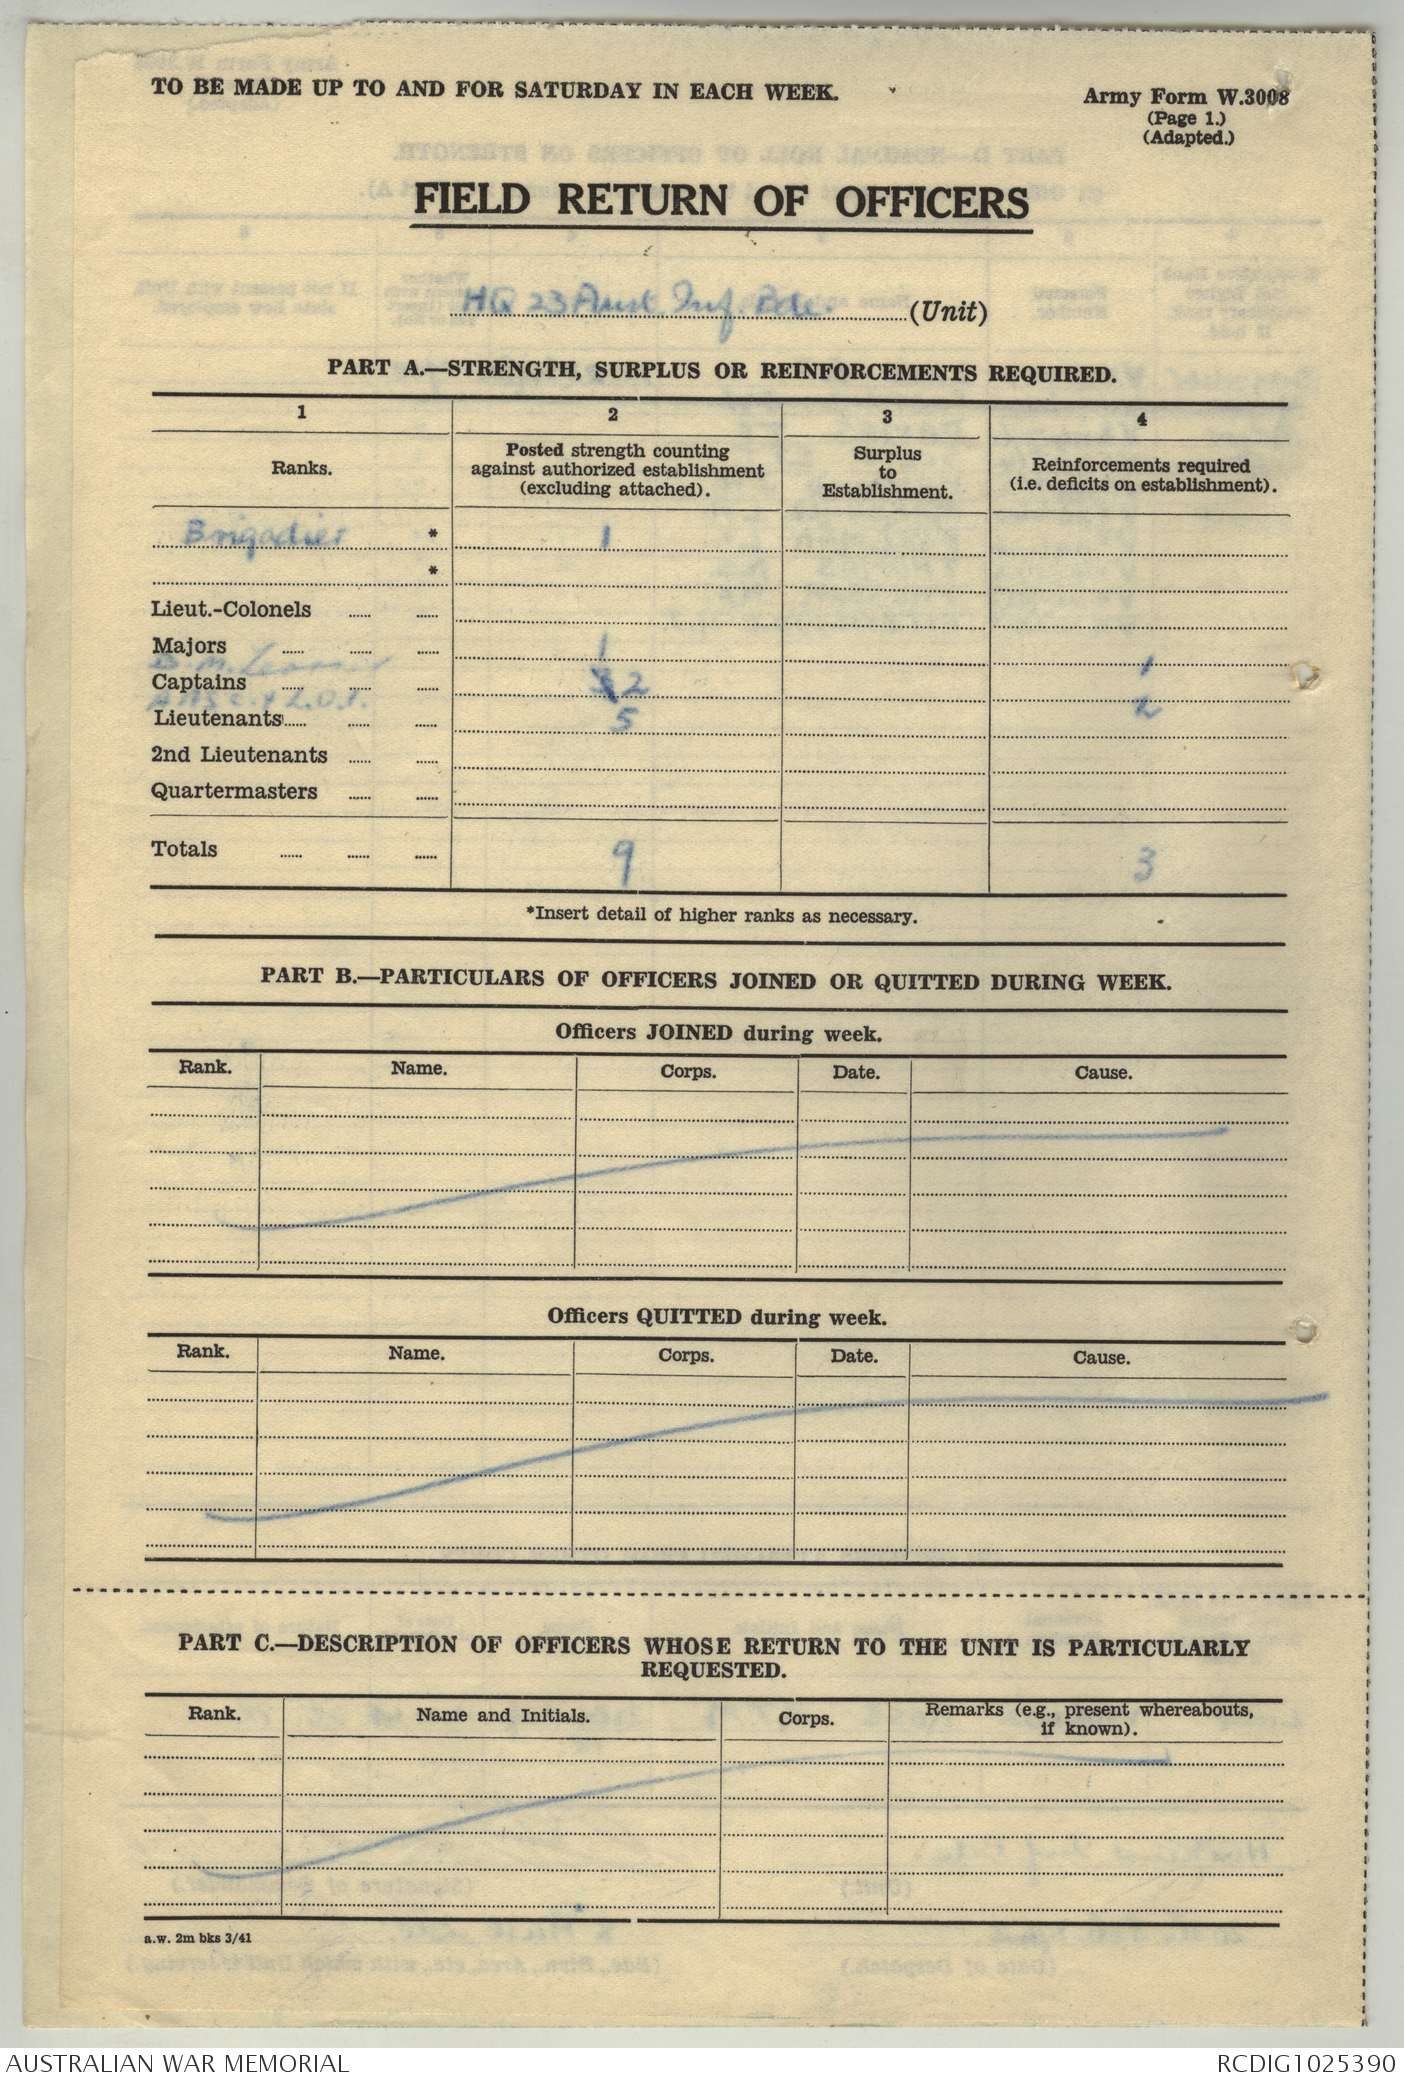 TO BE MADE UP TO AND FOR SATURDAY IN EACH WEEK.
Army Form W.3008
(Page 1.)
(Adapted.)
FIELD RETURN OF OFFICERS
HQ 23 Aust. Inf. Bde. (Unit)
PART A.—STRENGTH, SURPLUS OR REINFORCEMENTS REQUIRED.
1 2 3 4
Ranks. Posted strength counting against authorized establishment (excluding attached). Surplus to Establishment. Reinforcements required (i.e. deficits on establishment).
Brigadier * 1
*
Lieut.-Colonels
Majors 1 1
B. M.
Captains 3 2 2
L.O.
Lieutenants 5
2nd Lieutenants
Quartermasters
Totals 9 3
*Insert detail of higher ranks as necessary.
PART B.—PARTICULARS OF OFFICERS JOINED OR QUITTED DURING WEEK.
Officers JOINED during week.
Rank. Name. Corps. Date. Cause.
Officers QUITTED during week.
Rank. Name. Corps. Date. Cause.
PART C.—DESCRIPTION OF OFFICERS WHOSE RETURN TO THE UNIT IS PARTICULARLY
REQUESTED.
Rank. Name and Initials. Corps. Remarks (e.g., present whereabouts, if known).
a.w. 2m bks 3/41
AUSTRALIAN WAR MEMORIAL RCDIG1025390